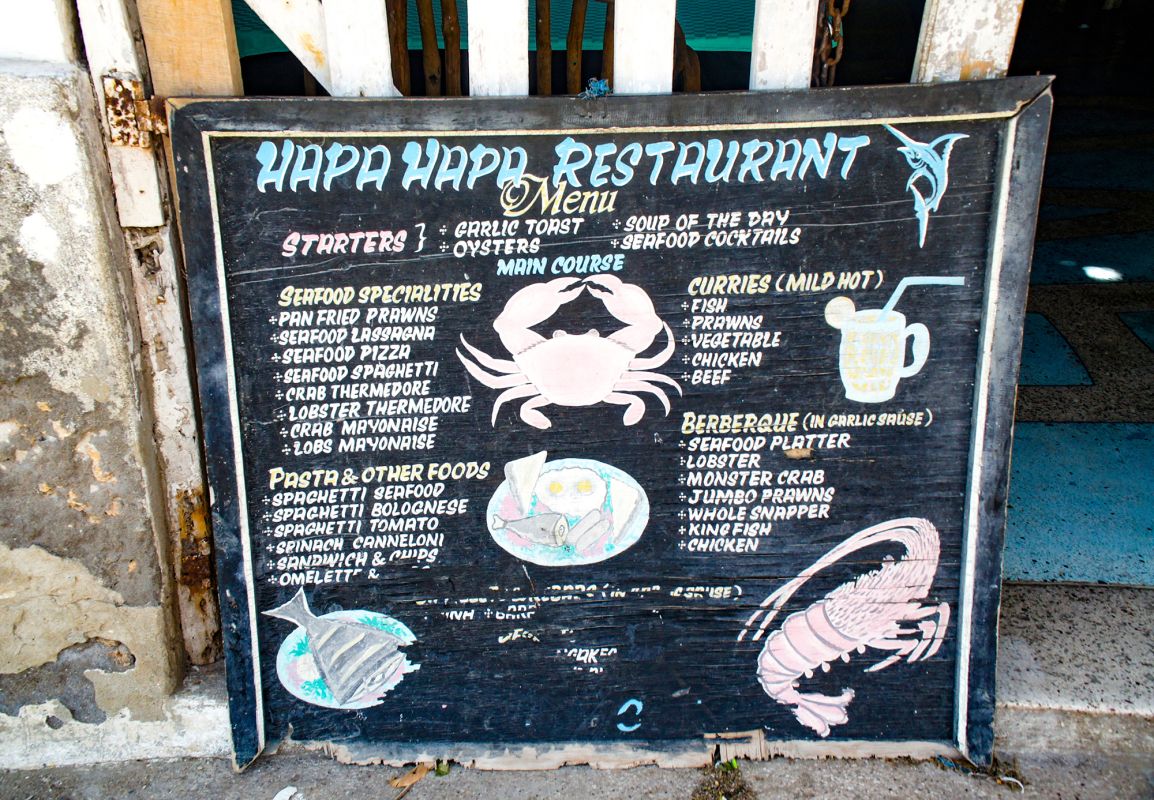 HAPA HAPA RESTAURANT
Menu
STARTERS } ÷ GARLIC TOAST ÷ SOUP OF THE DAY
÷ OYSTERS ÷ SEAFOOD COCKTAILS
MAIN COURSE
SEAFOOD SPECIALITIES
÷ PAN FRIED PRAWNS
÷ SEAFOOD LASSAGNA
÷ SEAFOOD PIZZA
÷ SEAFOOD SPAGHETTI
÷ CRAB THERMEDORE
÷ LOBSTER THERMEDORE
÷ CRAB MAYONAISE
÷ LOBS MAYONAISE
PASTA & OTHER FOODS
÷ SPAGHETTI SEAFOOD
÷ SPAGHETTI BOLOGNESE
÷ SPAGHETTI TOMATO
÷ SPINACH CANNELONI
÷ SANDWICH & CHIPS
÷ OMELETTE &
CURRIES (MILD HOT)
÷ FISH
÷ PRAWNS
÷ VEGETABLE
÷ CHICKEN
÷ BEEF
BERBERQUE (IN GARLIC SAUSE)
÷ SEAFOOD PLATTER
÷ LOBSTER
÷ MONSTER CRAB
÷ JUMBO PRAWNS
÷ WHOLE SNAPPER
÷ KING FISH
÷ CHICKEN